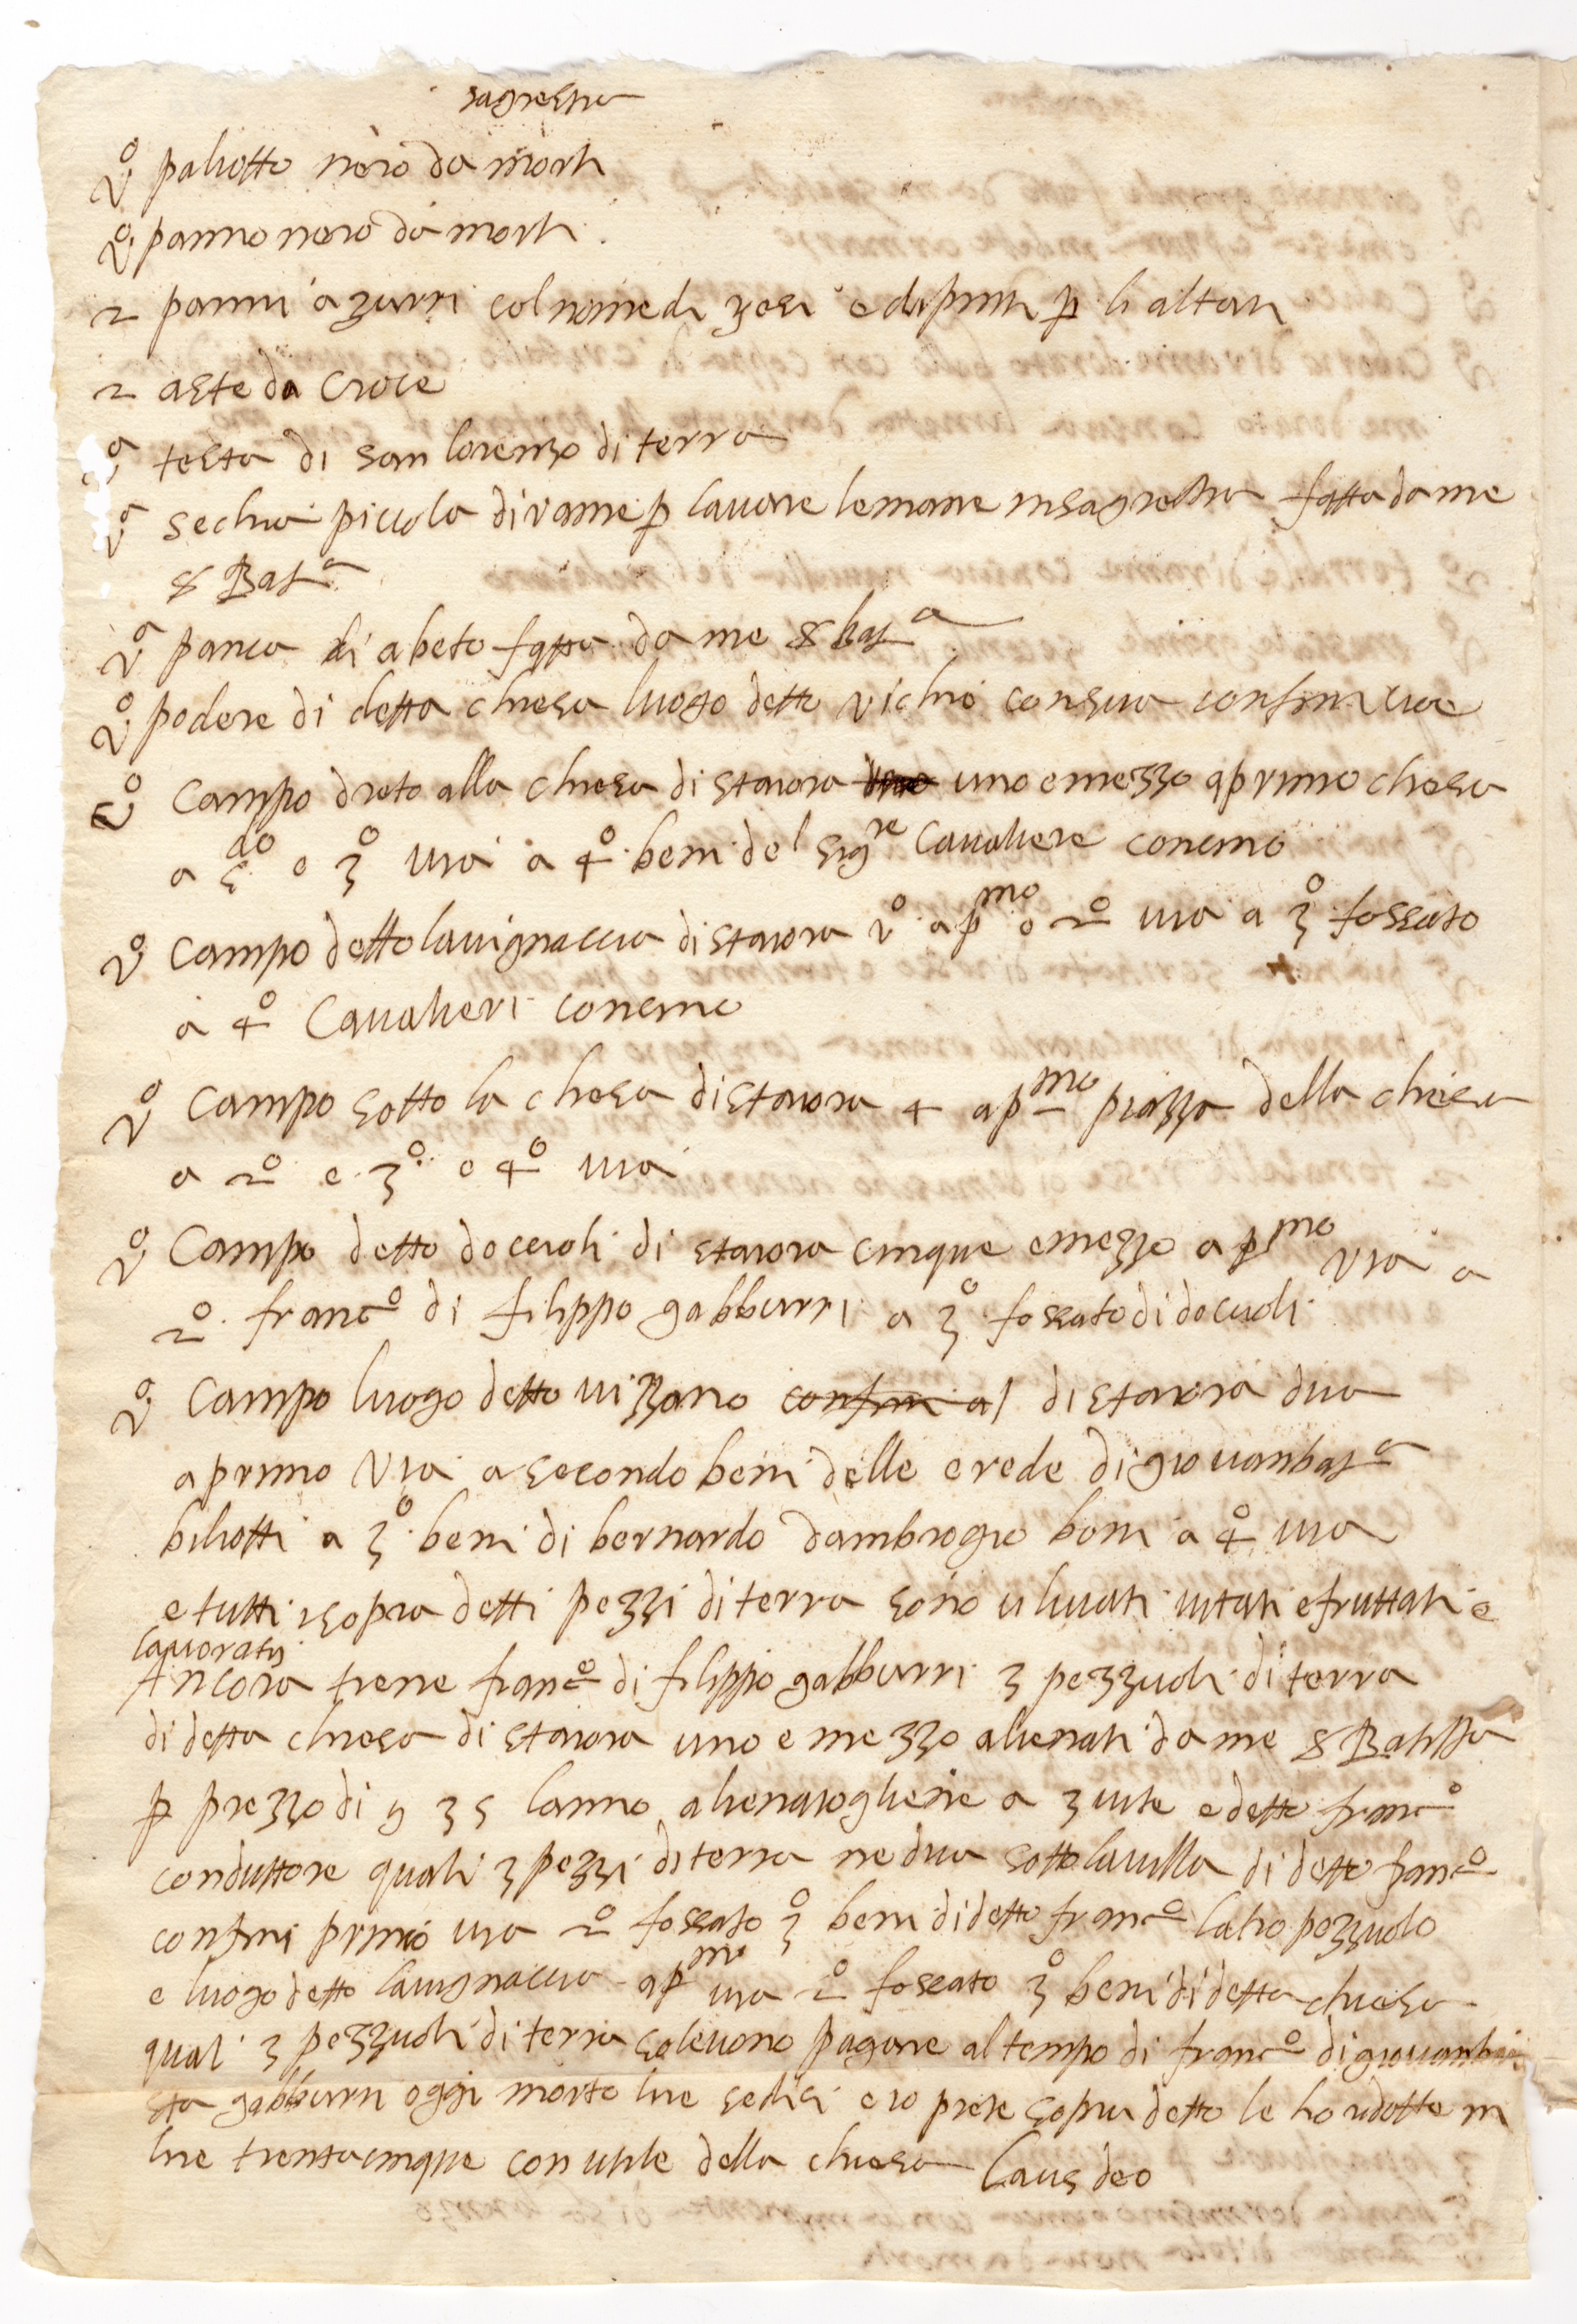 sagrestia
1º paliotto nero da morti
1º panno nero da morti
2 panni azurri col nome di yesu e dipinti p li altari
2 aste da croce
1ª testa di san lorenzo di terra
1ª sechia piccola di rame p lavare le mane in sagrestia fatta da me
S Batª
1ª panca di abeto fatta da me S batª
1º podere di detta chiesa luogo detto vichio con sua confini cioe
Eº Campo dreto alla chiesa di staiora uno e mezzo a primo chiesa
a sdo e 3º via a 4º beni del sigre Cavaliere concino
1º Campo detto la vignaccia di staiora 1º a pmo e 2º via a 3º fossato
a 4º Cavalieri concino
1º Campo sotto la chiesa di staiora 4 a pmo piazza della chiesa
a 2º e 3º e 4º via
1º Campo detto docciuoli di staiora cinque e mezzo a pmo via a
2º francº di filippo gabburri a 3º fossato di dociuoli
1º Campo luogo detto vizzano confini al di staiora dua
a primo via a secondo beni delle erede di giovanbatª
biliotti a 3º beni di bernardo dambrogio boni a 4º via
e tutti i sopra detti pezzi di terra sono ulivati vitati e fruttati e
lavorativi
Ancora tiene francº di filippo gabburri 3 pezzuoli di terra
di detta chiesa di staiora uno e mezzo alienati da me S Batista
p prezzo di 35 lanno alienatogliene a 3 vite e detto francº
conduttore quali 3 pezzi di terra ne dua sotto la villa di detto francº
confini primo via 2º fossato 3º beni di detto francº laltro pezzuolo
e luogo detto la vignaccia a pmo via 2º fossato 3º beni di detta chiesa
quali 3 pezzuoli di terra solevono pagare al tempo di francº di giovanbati
sta gabburri oggi morto lire sedici e io prete sopra detto le ho ridotte in
lire trentacinque con utile della chiesa Laus deo